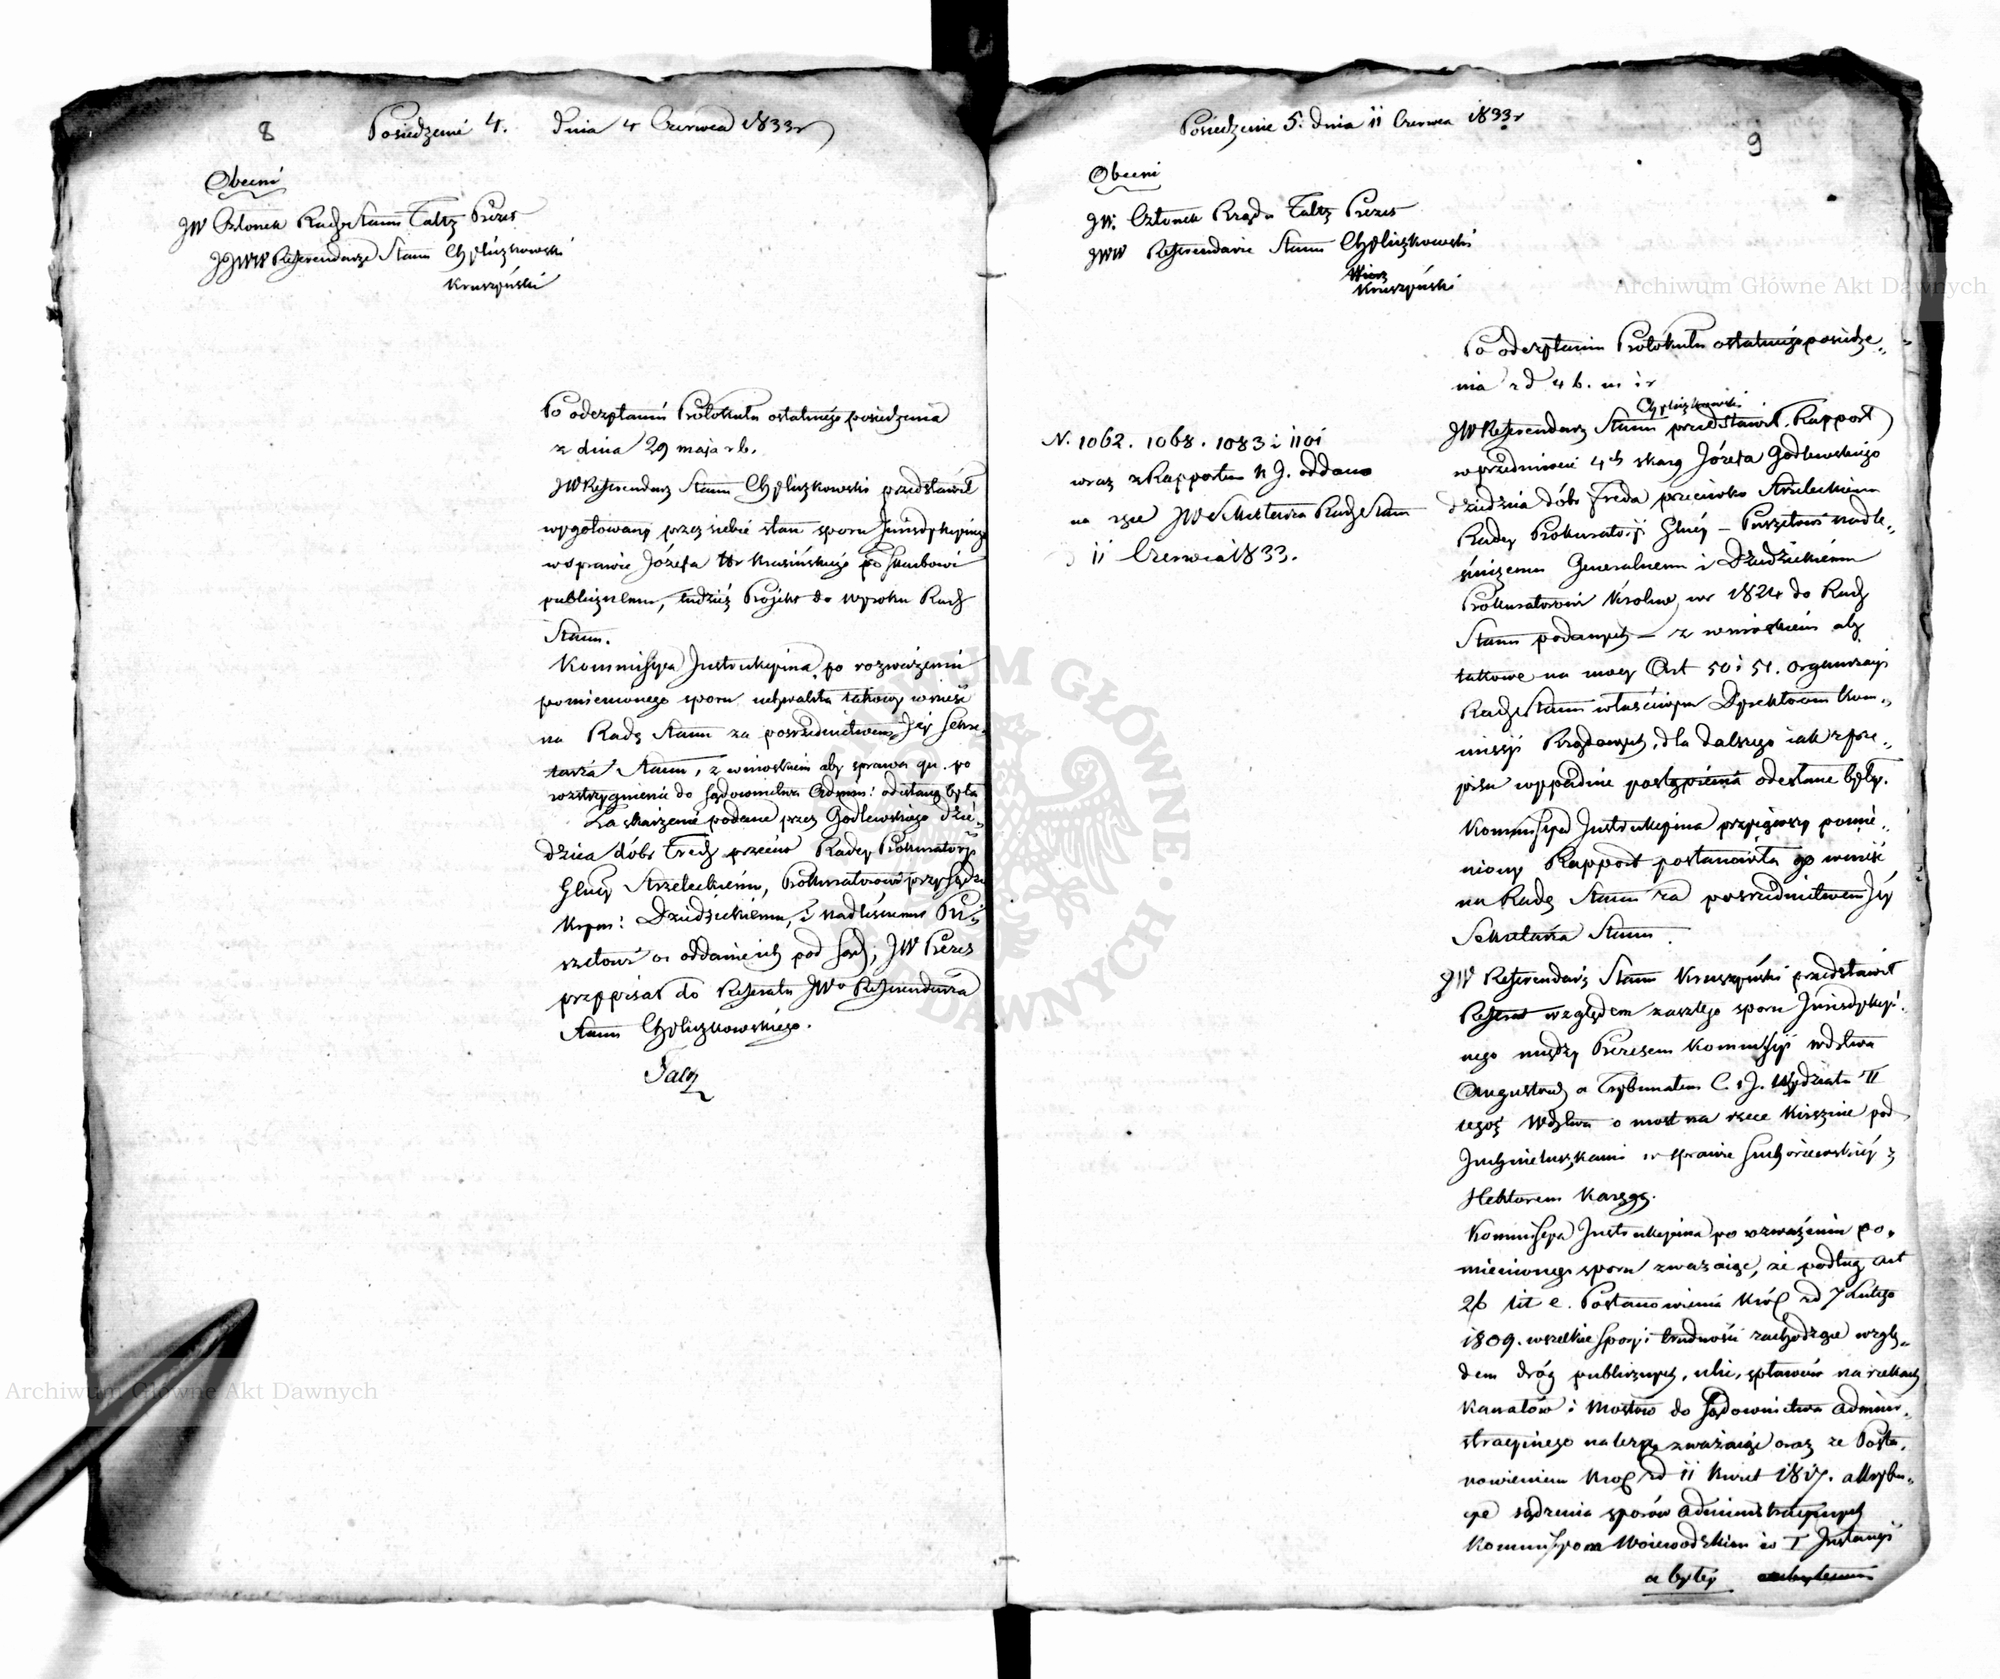 8
Posiedzenie 4. dnia 4 Czerwca 1833 r
Obecni
JW Członek Rady Stanu Faltz Prezes
JJWW Referendarze Stanu Chyliczkowski
Kruszyński
Po odczytaniu Protokułu ostatniego posiedzenia
z dnia 29 maja r b.
JW Referendarz Stanu Chyliczkowski przedstawił
wygotowany przez siebie stan sporu Jurisdykcyinego
w sprawie Józefa Krasińskiego Skarbowi
publicznemu, tudzież Projekt do wyroku Rady
Stanu.
Kommissya Instrukcyina po rozważeniu
pomienionego sporu uchwaliła takowy wnieść
na Radę Stanu za pośrednictwem Jéy Sekre„
tarza Stanu, z wnioskiem aby sprawa qu. po
rozstrzygnienie do Sądownictwa Admin: odesłaną była
Zaskarżenie podane przez Godlewskiego dzie„
dzica dóbr Fredy przeciw Radcy Prokuratoryi
Głnéy Strzeleckiemu, Prokuratorowi przy Sądzie
Krym: Dziedzickiemu, i nadleśnemu Pu„
szetowi o oddanie ich pod Sąd; JW Prezes
przypisał do Referatu JWo Referendarza
Stanu Chyliczkowskiego.
Faltz
9
Posiedzenie 5. dnia 11 Czerwca 1833 r
Obecni
JW. Członek Rządu Faltz Prezes
JWW Referendarze Stanu Chyliczkowski
Kruszyński
Po odczytaniu Protokułu ostatniego posiedze„
nia z d 4 b. m. i r
Chyliczkowski
JW Referendarz Stanu przedstawił Rapport
w przedmiocie 4ch skarg Józefa Godlewskiego
dziedzica dóbr Freda przeciwko Strzeleckiemu
Radcy Prokuratoryi Głnéy – Puszetowi nadle„
śniczemu Generalnemu i Dziedzickiemu
Prokuratorowi Królew. w r 1824 do Rady
Stanu podanych – z wnioskiem aby
takowe na mocy Art 50 i 51. organizacyi
Rady Stanu właściwym Dyrektorom Kom„
missyi Rządowych, dla dalszego iak z prze„
pisu wypadnie postąpienia odesłane były.
Kommissya Instrukcyina przyiąwszy pomie„
niony Rapport postanowiła go wnieść
na Radę Stanu za pośrednictwem Jéy
Sekretarza Stanu.
N. 1062. 1068. 1083 i 1101
wraz z Rapportem K J. oddano
na ręce JW Sekretarza Rady Stanu
11 Czerwca 1833.
JW Referendarz Stanu Kruszyński przedstawił
Referat względem zaszłego sporu Jurisdykcyi„
nego między Prezesem Kommissyi Wdztwa
Augustow a Trybunałem C. i J. Wydziału II
tegoż Wdztwa o most na rzece Kirsznie pod
w sprawie Suchorzewskiéy z
Hektorem Karęgą.
Kommissya Instrukcyina po rozważeniu po„
mienionego sporu zważaiąc, że podług art
26 lit e. Postanowienia Król zd 7 Lutego
1809. wszelkie spory i trudności zachodzące wzglę„
dem dróg publicznych, ulic, spławów na rzekach
Kanałów i Mostów do Sądownictwa admini„
stracyinego należą, zważaiąc oraz ze Posta„
nowieniem Król zd 11 Kwiet 1817. attrybu„
cye sądzenia sporów administracyinych
Kommissyom Woiewodzkim w I Instancyi
a byłéy